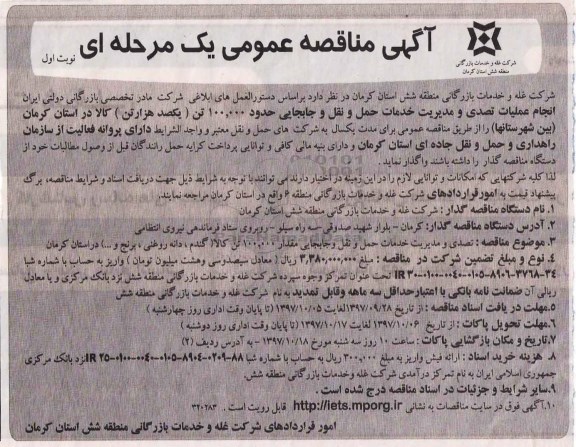 آگهی مناقصه عمومی یک مرحله ای
نوبت اول
شرکت غله و خدمات بازرگانی
منطقه شش استان کرمان
شرکت غله و خدمات بازرگانی منطقه شش استان کرمان در نظر دارد براساس دستورالعمل های ابلاغی شرکت مادر تخصصی بازرگانی دولتی ایران
انجام عملیات تصدی و مدیریت خدمات حمل و نقل و جابجایی حدود ۱۰۰,۰۰۰ تن ( یکصد هزارتن ) کالا در استان کرمان
(بین شهرستانها) را از طریق مناقصه عمومی برای مدت یکسال به شرکت های حمل و نقل معتبر و واجد الشرایط دارای پروانه فعالیت از سازمان
راهداری و حمل و نقل جاده ای استان کرمان و دارای بنیه مالی کافی و توانایی پرداخت کرایه حمل رانندگان قبل از وصول مطالبات خود از
دستگاه مناقصه گذار را داشته باشند واگذار نماید.
لذا کلیه شرکتهایی که امکانات و توانایی لازم را در این زمینه در اختیار دارند می توانند با توجه به شرایط ذیل جهت دریافت اسناد و شرایط مناقصه، برگ
پیشنهاد قیمت به امور قراردادهای شرکت غله و خدمات بازرگانی منطقه ۶ واقع در استان کرمان مراجعه نمایند.
۱. نام دستگاه مناقصه گذار : شرکت غله و خدمات بازرگانی منطقه شش استان کرمان
۲. آدرس دستگاه مناقصه گذار: کرمان - بلوار شهید صدوقی-سه راه سیلو - روبروی ستاد فرماندهی نیروی انتظامی
۳. موضوع مناقصه : تصدی و مدیریت خدمات حمل و نقل وجابجایی مقدار ۱۰۰,۰۰۰ تن کالا( گندم ، دانه روغنی ، برنج و ...) دراستان کرمان
۴. نوع و مبلغ تضمین شرکت در مناقصه : مبلغ ۳,۳۸۰,۰۰۰,۰۰۰ ریال ( معادل سیصدوسی وهشت میلیون تومان ) واریز به حساب با شماره شبا
IR ۳۰-۰۱۰۰-۰۰۴۰-۰۱۰۵-۸۹۰۶-۳۷۶۸-۳۴ تحت عنوان تمرکز وجوه سپرده شرکت غله و خدمات بازرگانی منطقه شش نزد بانک مرکزی و یا معادل
ریالی آن ضمانت نامه بانکی با اعتبارحداقل سه ماهه وقابل تمدید به نام شرکت غله و خدمات بازرگانی منطقه شش
۵.مهلت در یافت اسناد مناقصه : از تاریخ ۱۳۹۷/۰۹/۲۸لغایت ۱۳۹۷/۱۰/۰۵ (تا پایان وقت اداری روز چهارشنبه )
۶.مهلت تحویل پاکات : از تاریخ ۱۳۹۷/۱۰/۰۶ لغایت ۱۳۹۷/۱۰/۱۷ (تا پایان وقت اداری روز دوشنبه )
۷.تاریخ و مکان بازگشایی پاکات : ساعت ۱۰ روز سه شنبه مورخ ۱۳۹۷/۱۰/۱۸ - به آدرس ردیف (۲)
۸. هزینه خرید اسناد : ارائه فیش واریز به مبلغ ۳۰۰,۰۰۰ ریال به حساب با شماره شبا IR۲۵-۰۱۰۰-۰۰۴۰-۰۱۰۵-۸۹۰۴-۰۲۰۹-۸۸نزد بانک مرکزی
جمهوری اسلامی ایران به نام تمرکز درآمدی شرکت غله وخدمات بازرگانی منطقه شش.
۹.سایر شرایط و جزئیات در اسناد مناقصه درج شده است .
۱۰.آگهی فوق در سایت مناقصات به نشانی http://iets.mporg.ir قابل رویت است . ۳۲۰۲۸۳
امور قراردادهای شرکت غله و خدمات بازرگانی منطقه شش استان کرمان